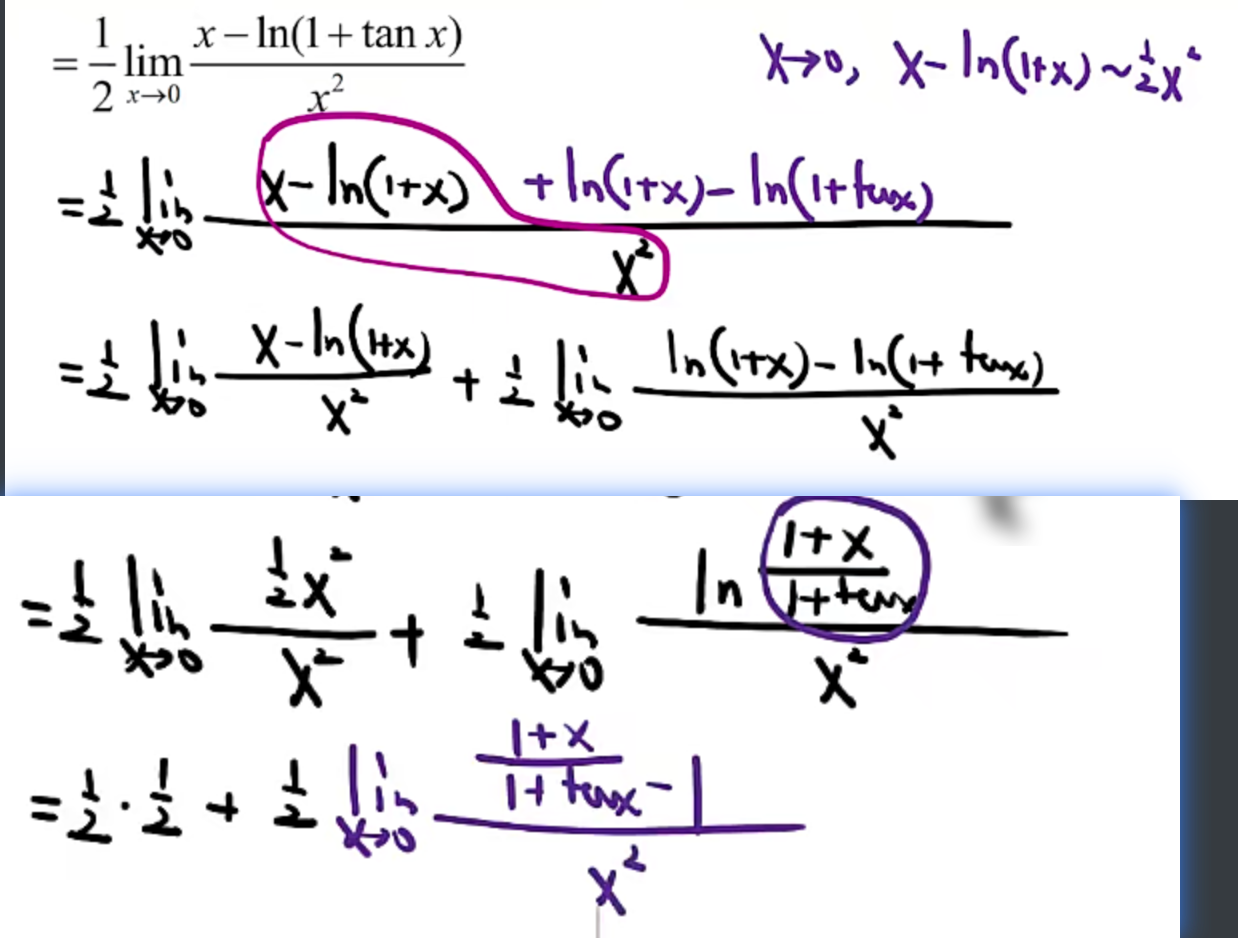 = 1/2 lim_{x→0} (x − ln(1 + tan x)) / x²
x→0, x − ln(1+x) ~ 1/2 x²
= 1/2 lim_{x→0} (x − ln(1+x) + ln(1+x) − ln(1+tanx)) / x²
= 1/2 lim_{x→0} (x − ln(1+x)) / x² + 1/2 lim_{x→0} (ln(1+x) − ln(1+tanx)) / x²
= 1/2 lim_{x→0} (1/2 x²) / x² + 1/2 lim_{x→0} (ln (1+x)/(1+tanx)) / x²
= 1/2 · 1/2 + 1/2 lim_{x→0} ((1+x)/(1+tanx) − 1) / x²